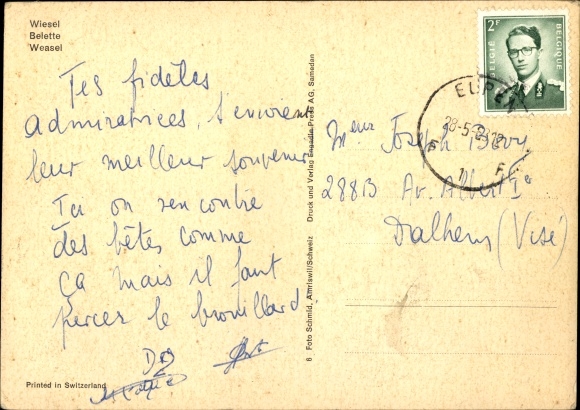 Wiesel
Belette
Weasel
Tes fidèles
admiratrices, t'envoient
leur meilleur souvenir
Ici on rencontre
des bêtes comme
ça mais il faut
percer le brouillard
Printed in Switzerland
6 Foto Schmid, Amriswil/Schweiz Druck und Verlag Engadin Press AG, Samedan
2F
BELGIË BELGIQUE
EUPEN
28-5
1 F
Meur Joseph
288B Av. Albert Ie
Dalhem (Visé)